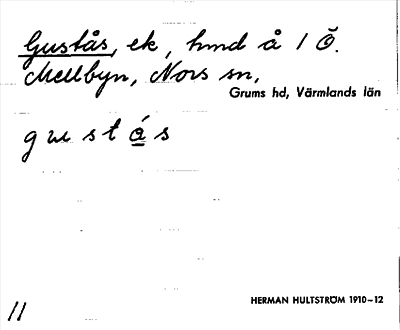 Gustås, ek, hmd å 1 Ö.
Mellbyn, Nors sn,
Grums hd, Värmlands län
gustás
HERMAN HULTSTRÖM 1910–12
11